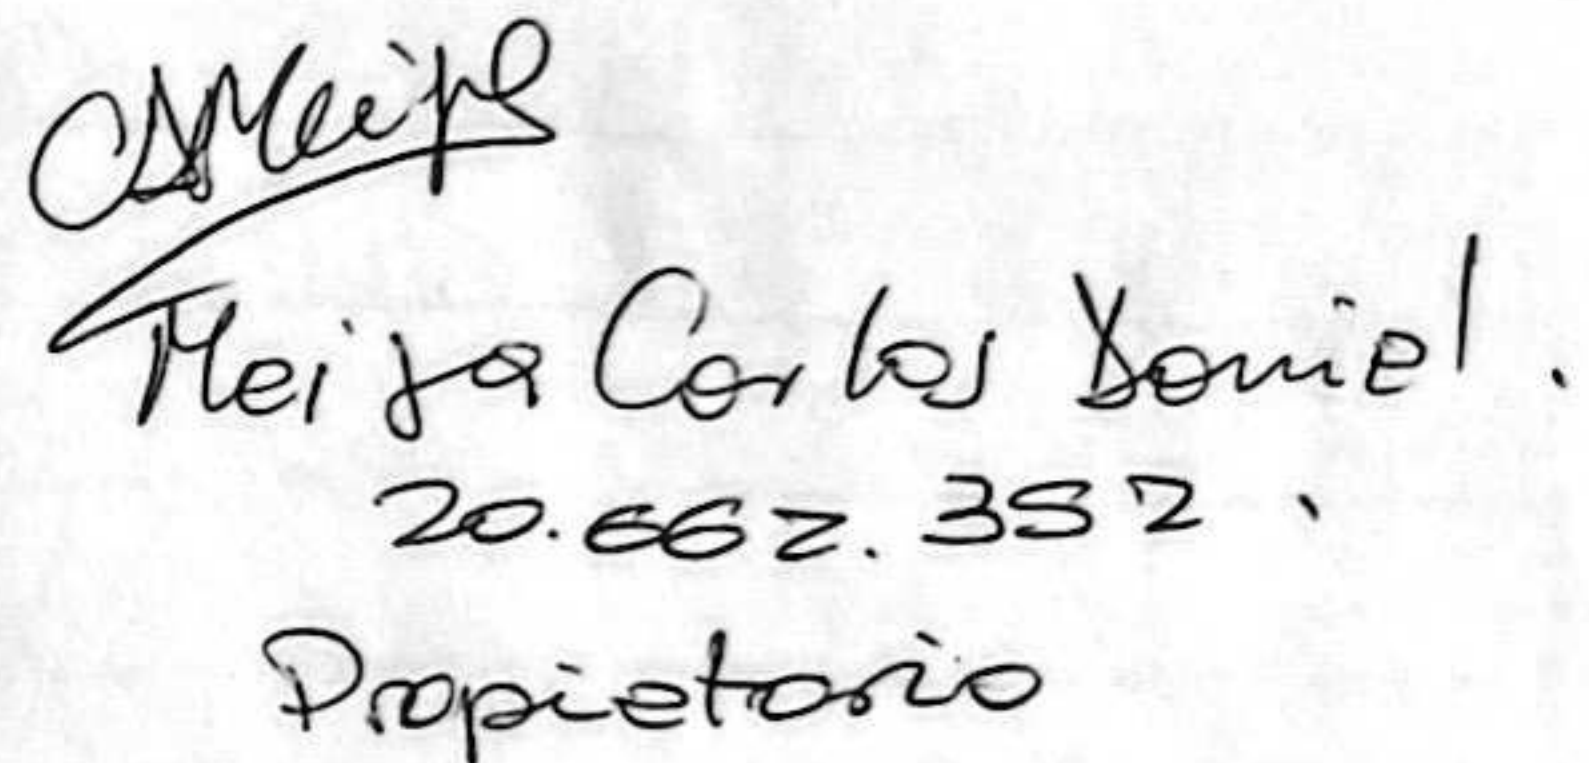 Meija Carlos Daniel.
20.662.352.
Propietario